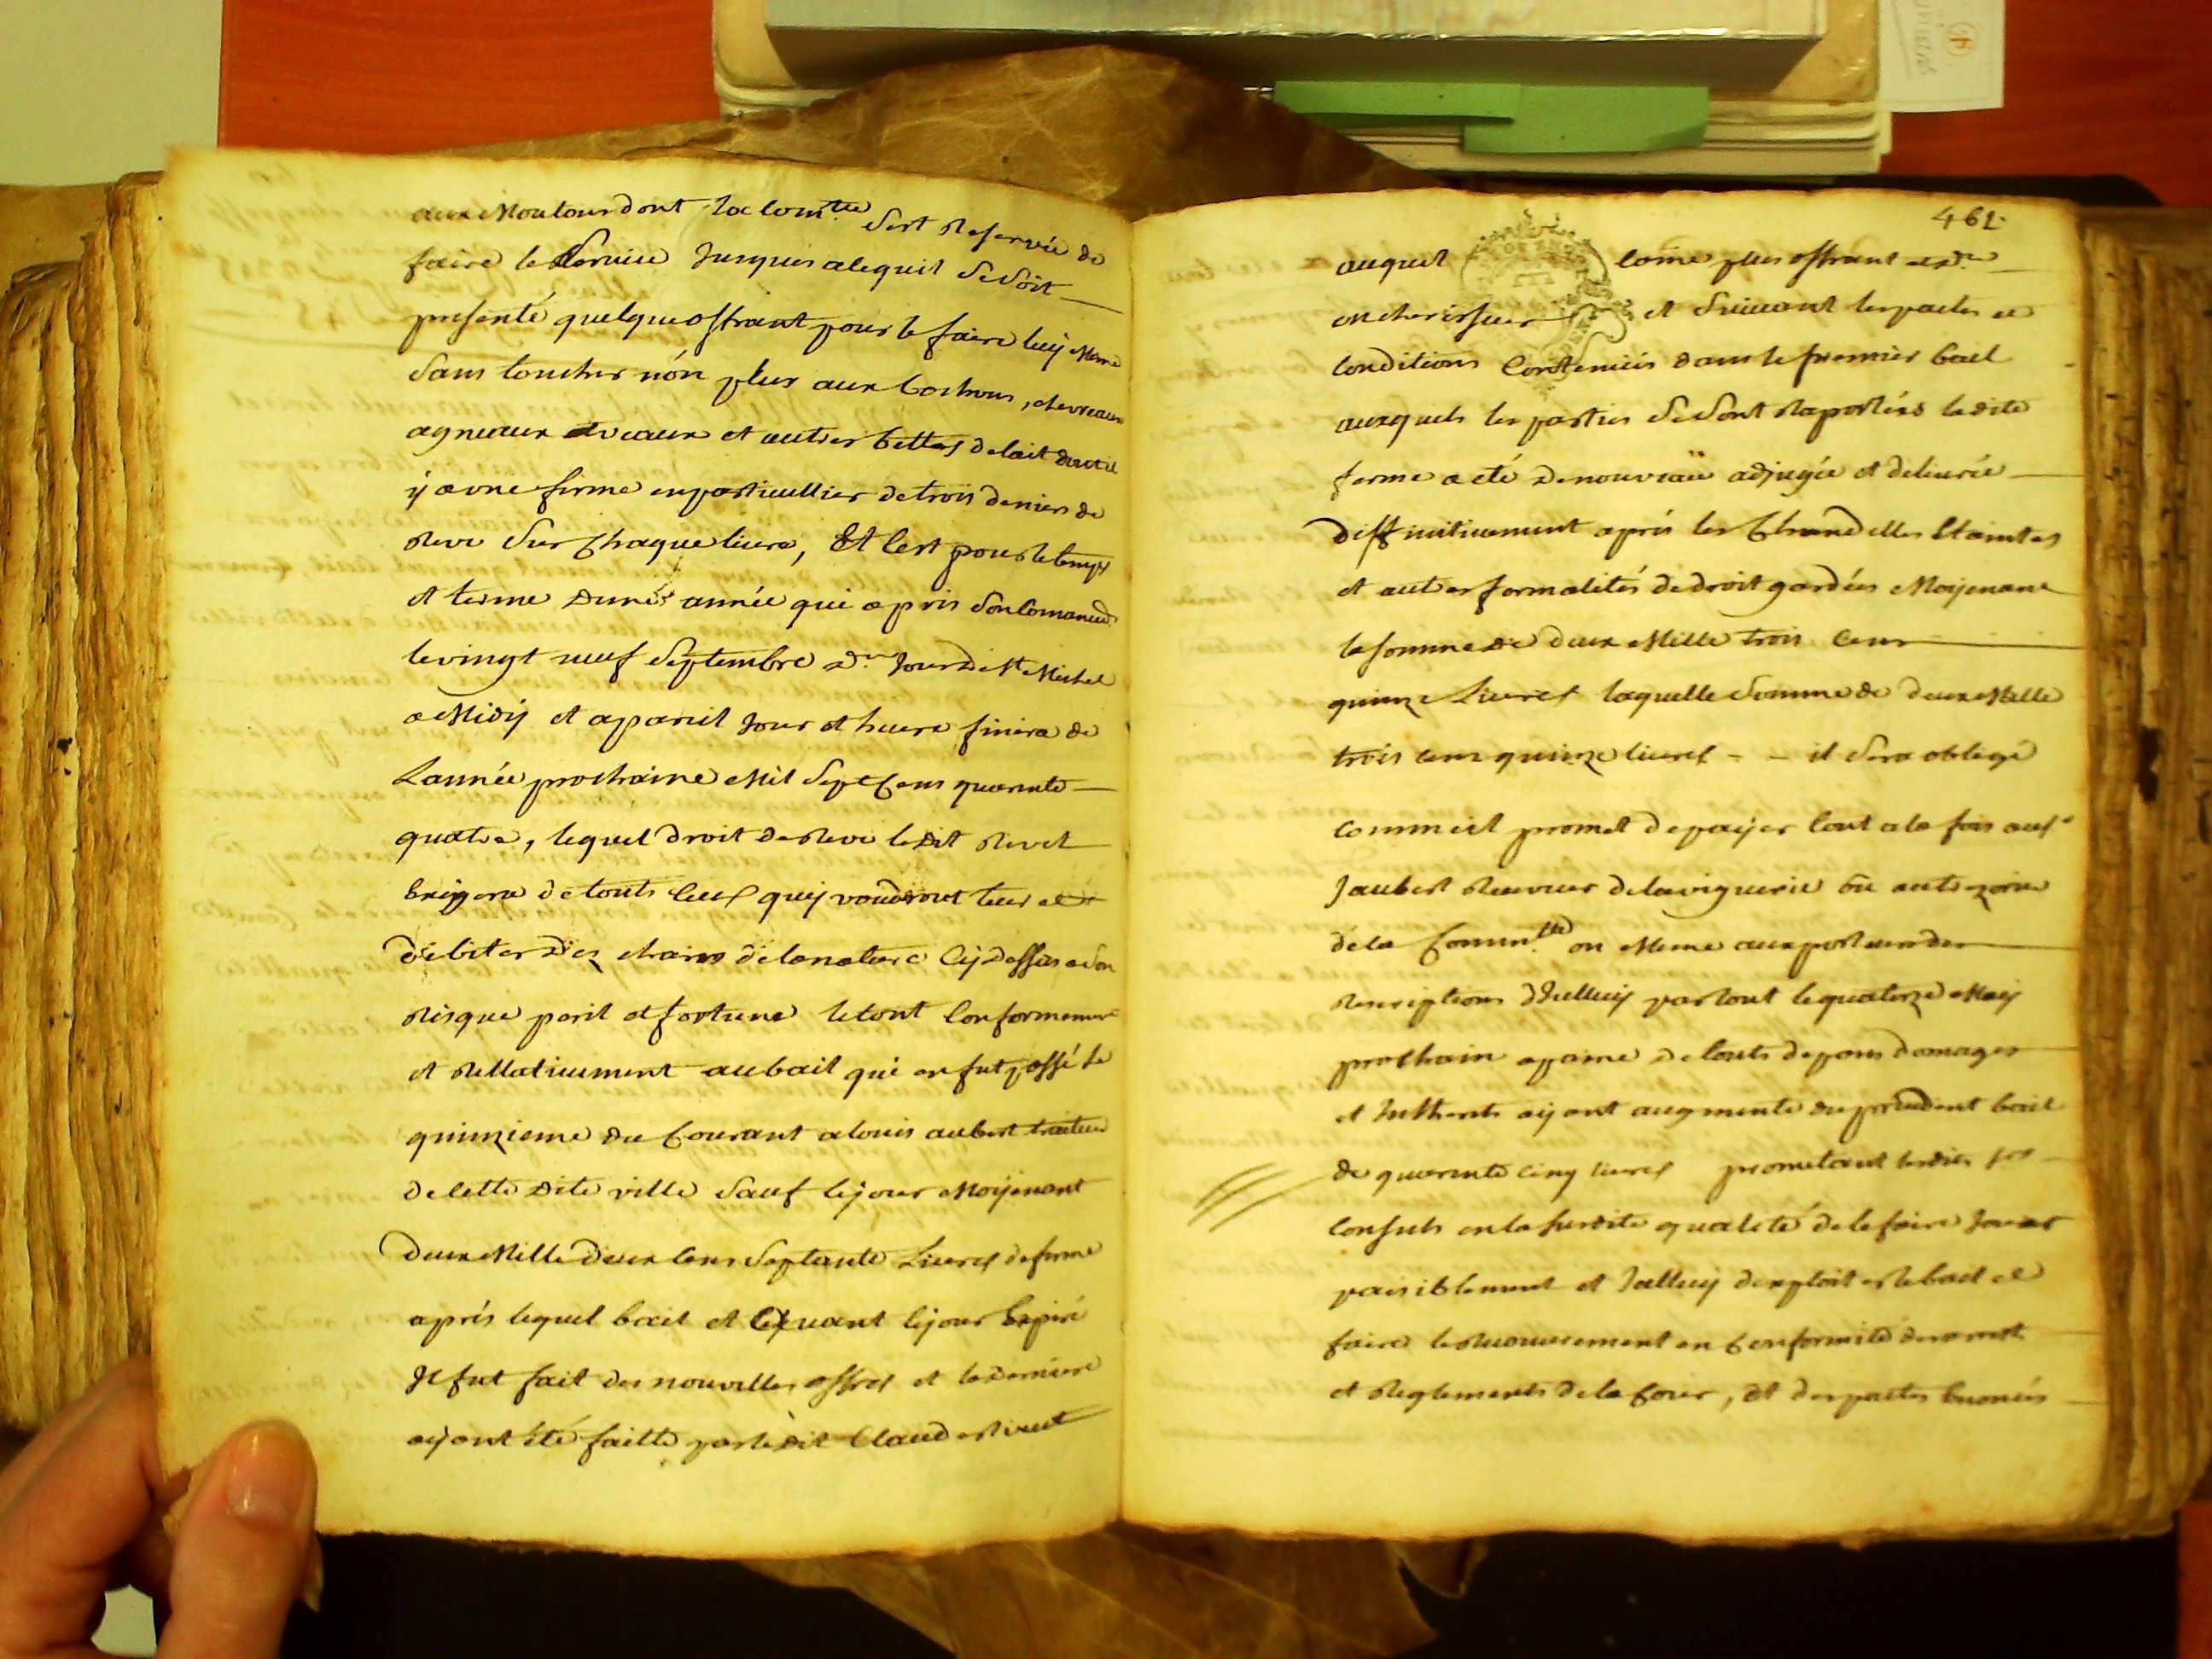 aux Moutons dont la Com.tté Sest Reservée de
faire le Service Jusques acequil Se Soit
presenté quelque offrant pour le faire luy Meme
Sans toucher nón plus aux Cochons, chevreaux
agneaux veaux et autres bettes de lait dont il
y a vne ferme en particullier de trois deniers de
Reve Sur Chaque livre, Et Cest pour le temps
et terme Dune année qui a pris Son Comance
le vingt neuf Septembre d.er Jour de St Michel
a Midy et a pareil Jour et heure finira de
Lannée prochaine Mil Sept Cens quarente
quatre, lequel droit de Reve ledit Rivet
Exigera de touts Ceux quy voudront tuer et
debiter des chairs de la nature Cy dessus a Son
Risque peril et fortune le tout Conformement
et Rellativement au bail qui en fut passé le
quinzieme du Courant a louis aubert traiteur
de Cette dite ville Sauf le jour Moyenant
Deux Mille deux Cens Septante Livres de ferme
aprés lequel bail et avant le jour Expiré
Il fut fait des nouvelles offres et la derniere
ayant été faitte par ledit Claude Rivet
461.
auquel Come plus offrant et d.er
encherisseur et Suivant les pactes et
Conditions Contenües dans le premier bail
auxquels les parties Se Sont Raportées ladite
ferme a eté de nouveaü adjugée et delivrée
Diffinitivement aprés les Chandelles Etaintes
et autres formalités de droit gardées Moyenant
la somme de deux Mille trois Cens
quinze Livres laquelle Somme de deux Mille
trois cens quinze livres - - il Sera obligé
comme il promet de payer tout a la fois au S.r
Jaubert Receveur de la viguerie ou au trezorier
de la Commun.tté ou Meme aux porteurs des
Rescriptions d'Icelluy partout le quatorze May
prochain a paine de touts depans domages
et Intherets ayant augmenté du precedent bail
de quarente cinq livres prometant lesdits srs
Consuls en la susdite qualité de le faire Jouir
paisiblement et Icelluy dexploiter le bail et
faire le Recouvrement en Conformité des arrets
et Reglements de la Cour, et des pactes Enoncés